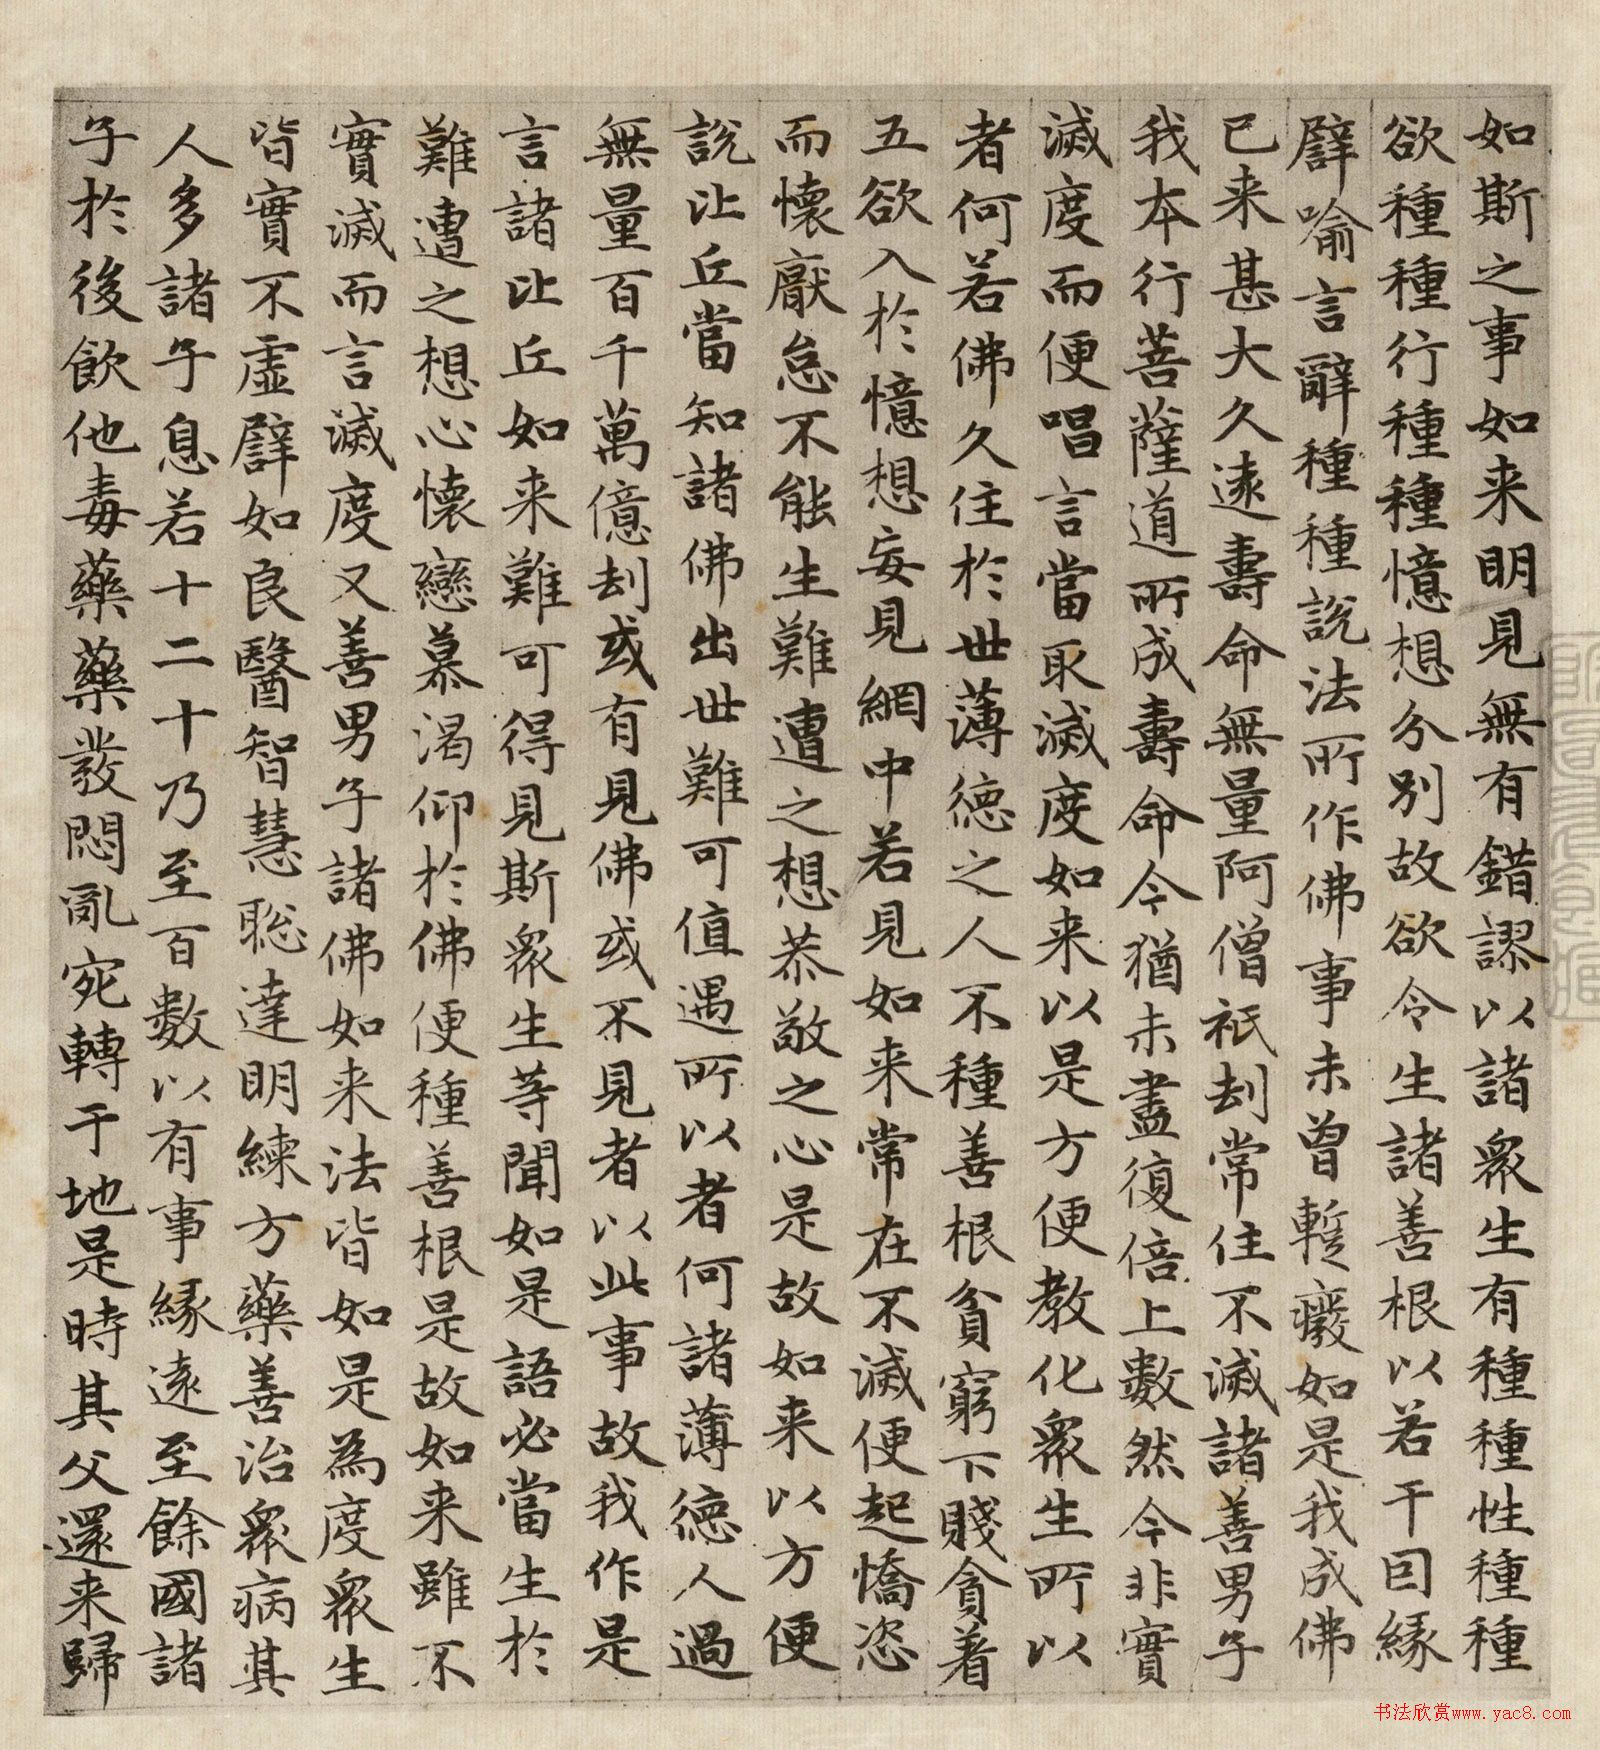 如斯之事如来明見無有錯謬以諸衆生有種種性種種
欲種種行種種憶想分別故欲令生諸善根以若干因緣
譬喻言辭種種說法所作佛事未曾暫癈如是我成佛
已来甚大久遠壽命無量阿僧祇劫常住不滅諸善男子
我本行菩薩道所成壽命今猶未盡復倍上數然今非實
滅度而便唱言當取滅度如来以是方便教化衆生所以
者何若佛久住於世薄德之人不種善根貧窮下賤貪著
五欲入於憶想妄見網中若見如来常在不滅便起憍恣
而懷厭怠不能生難遭之想恭敬之心是故如来以方便
說比丘當知諸佛出世難可值遇所以者何諸薄德人過
無量百千萬億劫或有見佛或不見者以此事故我作是
言諸比丘如来難可得見斯衆生等聞如是語必當生於
難遭之想心懷戀慕渴仰於佛便種善根是故如来雖不
實滅而言滅度又善男子諸佛如来法皆如是為度衆生
皆實不虛譬如良醫智慧聡達明練方藥善治衆病其
人多諸子息若十二十乃至百數以有事緣遠至餘國諸
子於後飲他毒藥藥發悶亂宛轉于地是時其父還来歸
书法欣赏www.yac8.com